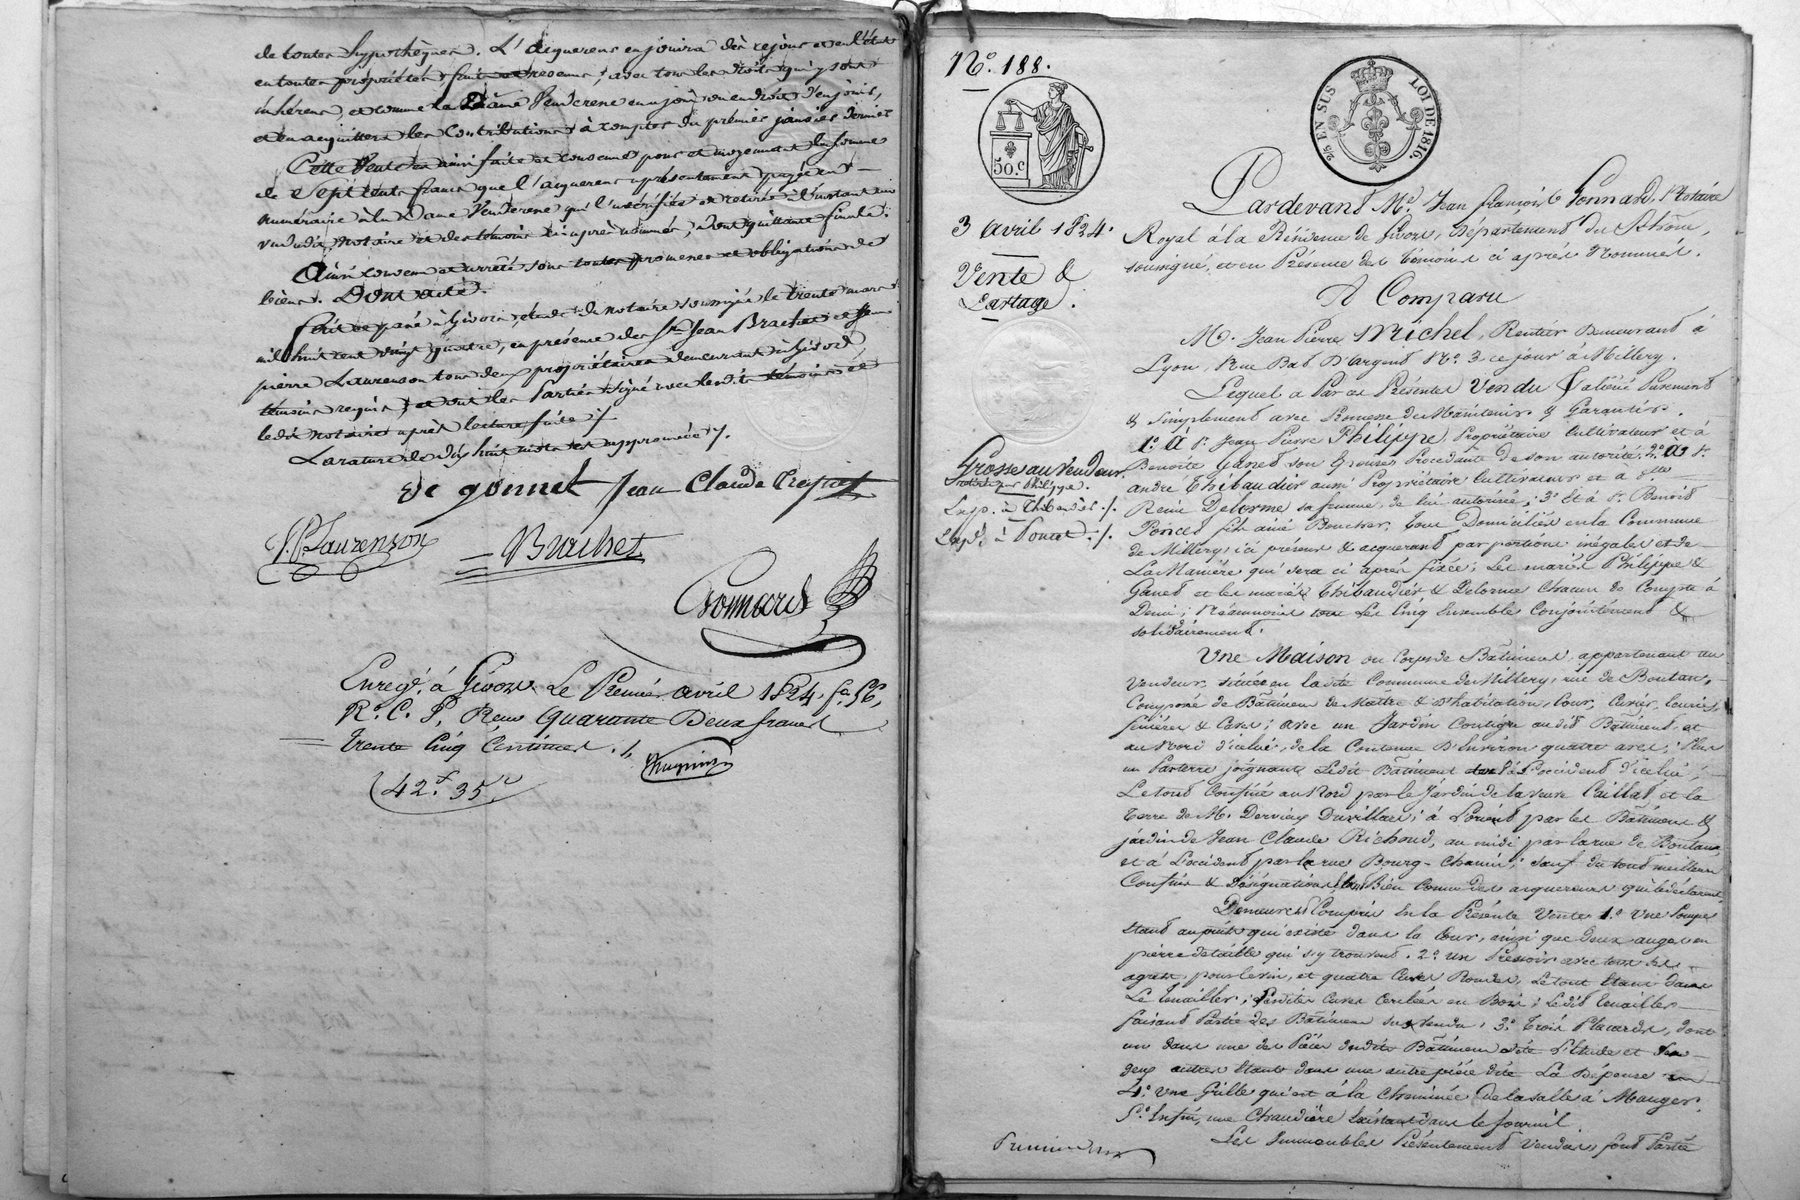 de toutes hypothèques. L'acquereur en jouira dès ce jour et en l'état
en toutes propriétés avec tous les droits qui y sont
inhérens, et comme la Dame Venderesse en a joui ou en droit d'en jouir,
et en acquittera les contributions à compter du premier janvier dernier
Cette Vente est ainsi faite et consenue pour et moyennant la somme
de Sept cents francs que l'acquereur a présentement payée en
numéraire à la Dame Venderesse qui l'a vérifiée et retirée à l'instant
vu dudit notaire et des témoins ci après nommés, dont quittance finale.
Ainsi convenu et arrêté sous toutes promesses et obligations de
biens. Dont acte.
Fait et passé à Givors, étude du notaire soussigné le trente mars
mil huit cent vingt quatre, en présence des Srs Jean Brachet et Jean
pierre Laurenson tous deux propriétaires demeurant à Givors,
témoins requis et ont les Parties signé avec lesdits témoins et
ledit notaire après lecture faite ./.
La rature de dix huit mots est approuvée ./.
de gonnet Jean Claude
J. P. Laurenson
Brachet
Gonnard
Enregé. à Givors Le Premier avril 1824, fo. 56,
Ro. C. 5, Reçu quarante Deux francs
trente Cinq Centimes ./.
42.f 35.c
No. 188.
50.c
2/5 EN SUS
LOI DE 1816.
3 Avril 1824.
Vente &
Partage.
Grosse au Vendeur
Exp. à Thibaudier ./.
Exp. à Poncet ./.
Pardevant Me. Jean François Gonnard, Notaire
Royal à la Résidence de Givors, Département du Rhône,
soussigné, et en Présence des témoins ci après Nommés.
A Comparu
M. Jean Pierre Michel, Rentier Demeurant à
Lyon, Rue Bas D'argent No. 3 ce jour à Millery.
Lequel a Par ces Présentes Vendu & aliéné Purement
& Simplement avec Promesse de Maintenir & Garantir.
1.o à Sr. Jean Pierre Philippe, Propriétaire Cultivateur et à
Benoite Ganet son épouse Procédante de son autorité; 2.o à Sr.
andré Thibaudier aussi Propriétaire Cultivateur et à
Reine Delorme sa femme, de lui autorisée; 3.o Et à Sr. Benoit
Poncet fils ainé Boucher, tous Domiciliés en la Commune
de Millery, ici présens & acquerant par portions inégales et de
La Manière qui sera ci après fixée; Les mariés Philippe &
Ganet et les mariés Thibaudier & Delorme Chacun de Compte à
Demi; Néanmoins tous Les Cinq Ensemble Conjointement &
solidairement.
Une Maison ou Corps de Bâtiment appartenant au
Vendeur, située en ladite Commune de Millery, rue de Boutan,
Composée de Bâtiment de Maître & d'habitation, Cour, Cuvier, Ecurie,
fenière & Cave; avec un Jardin Contigu audit Bâtiment, et
au Nord d'icelui, de la Contenue D'Environ quatre ares; Plus
un Parterre joignant Ledit Bâtiment à L'occident d'icelui;
Le tout Confiné au Nord par le Jardin de la Veuve Caillat et la
terre de M. Dervieu Duvillars; à L'orient par les Bâtimens &
jardin de Jean Claude Richoud, au midi par la rue de Boutan,
et à L'occident par la rue Bourg-Chanin; Sauf du tout meilleurs
Confins & Désignations, Bien Connu des acquereurs qui le déclarent.
Demeurent Compris En la Présente Vente 1.o Une Pompe
Etant au puits qui existe dans la Cour, ainsi que deux auges en
pierre de taille qui s'y trouvent. 2.o Un Pressoir avec tous ses
agrets, pour le vin, et quatre Cuves Rondes, Le tout Etant dans
Le tenailler; Lesdites Cuves Cerclées en Bois; Ledit tenailler
faisant Partie des Bâtimens sus Vendus, 3.o Trois Placards, dont
un dans une des Pièces dudit Bâtiment dite L'Etude et les
deux autres Etant dans une autre pièce dite La Dépense
4.o Une Grille qui est à la Cheminée de la salle à Manger.
5.o Enfin, une Chaudière Existant dans le fournil.
Les Immeubles Présentement Vendus, font Partie